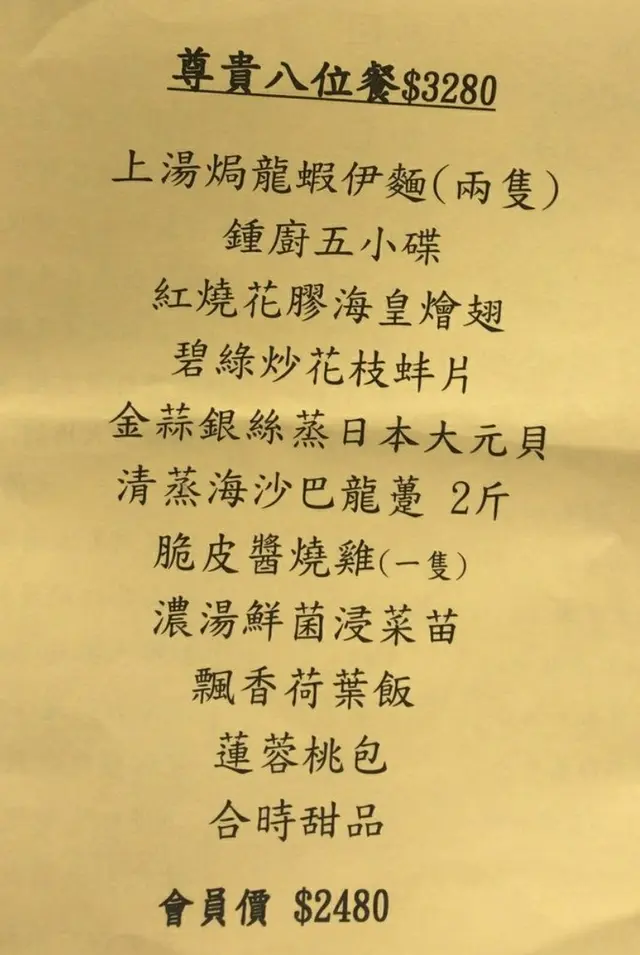 尊貴八位餐$3280
上湯焗龍蝦伊麵(兩隻)
鍾廚五小碟
紅燒花膠海皇燴翅
碧綠炒花枝蚌片
金蒜銀絲蒸日本大元貝
清蒸海沙巴龍躉 2斤
脆皮醬燒雞(一隻)
濃湯鮮菌浸菜苗
飄香荷葉飯
蓮蓉桃包
合時甜品
會員價 $2480